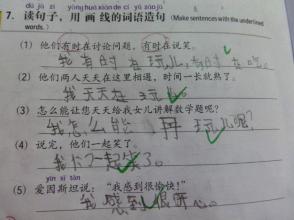 dú jù zi yòng huà xiàn de cí yǔ zào jù
7. 读句子，用画线的词语造句（Make sentences with the underlined
words.）
(1) 他们有时在讨论问题，有时在说笑。
我有时在玩儿，有时在吃。
(2) 他们两人天天在这里相遇，时间一长就熟了。
我天天在玩儿。
(3) 怎么能让您天天给我女儿讲解数学题呢？
我怎么能再玩儿呢？
(4) 说完，他们一起笑了。
我们一起笑了。
yīn sī tǎn
(5) 爱因斯坦说：“我感到很愉快！”
我感到很开心。